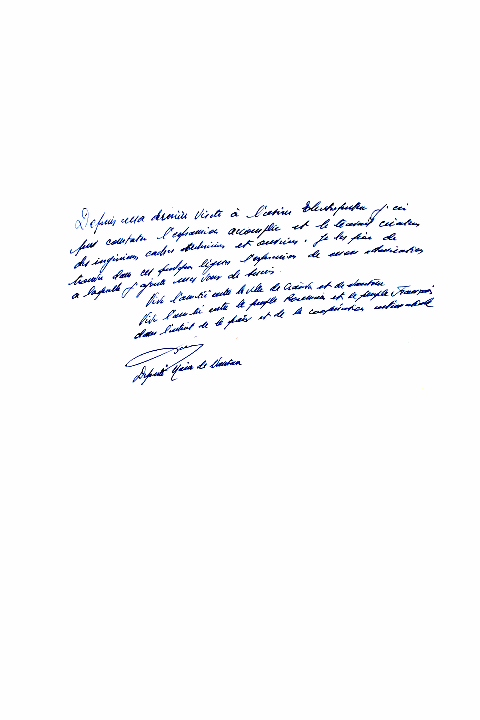 Depuis ma dernière visite à l'usine Electroputere j'ai
pu constater l'expansion accomplie et le travail créateur
des ingénieurs cadres techniciens et ouvriers. Je les prie de
trouver dans ces quelques lignes l'expression de mon admiration
à laquelle j'ajoute mes vœux de succès.
Vive l'amitié entre la ville de Craiova et de Nanterre
Vive l'amitié entre le peuple Roumain et le peuple Français
dans l'intérêt de la paix et de la coopération internationale
Député Maire de Nanterre